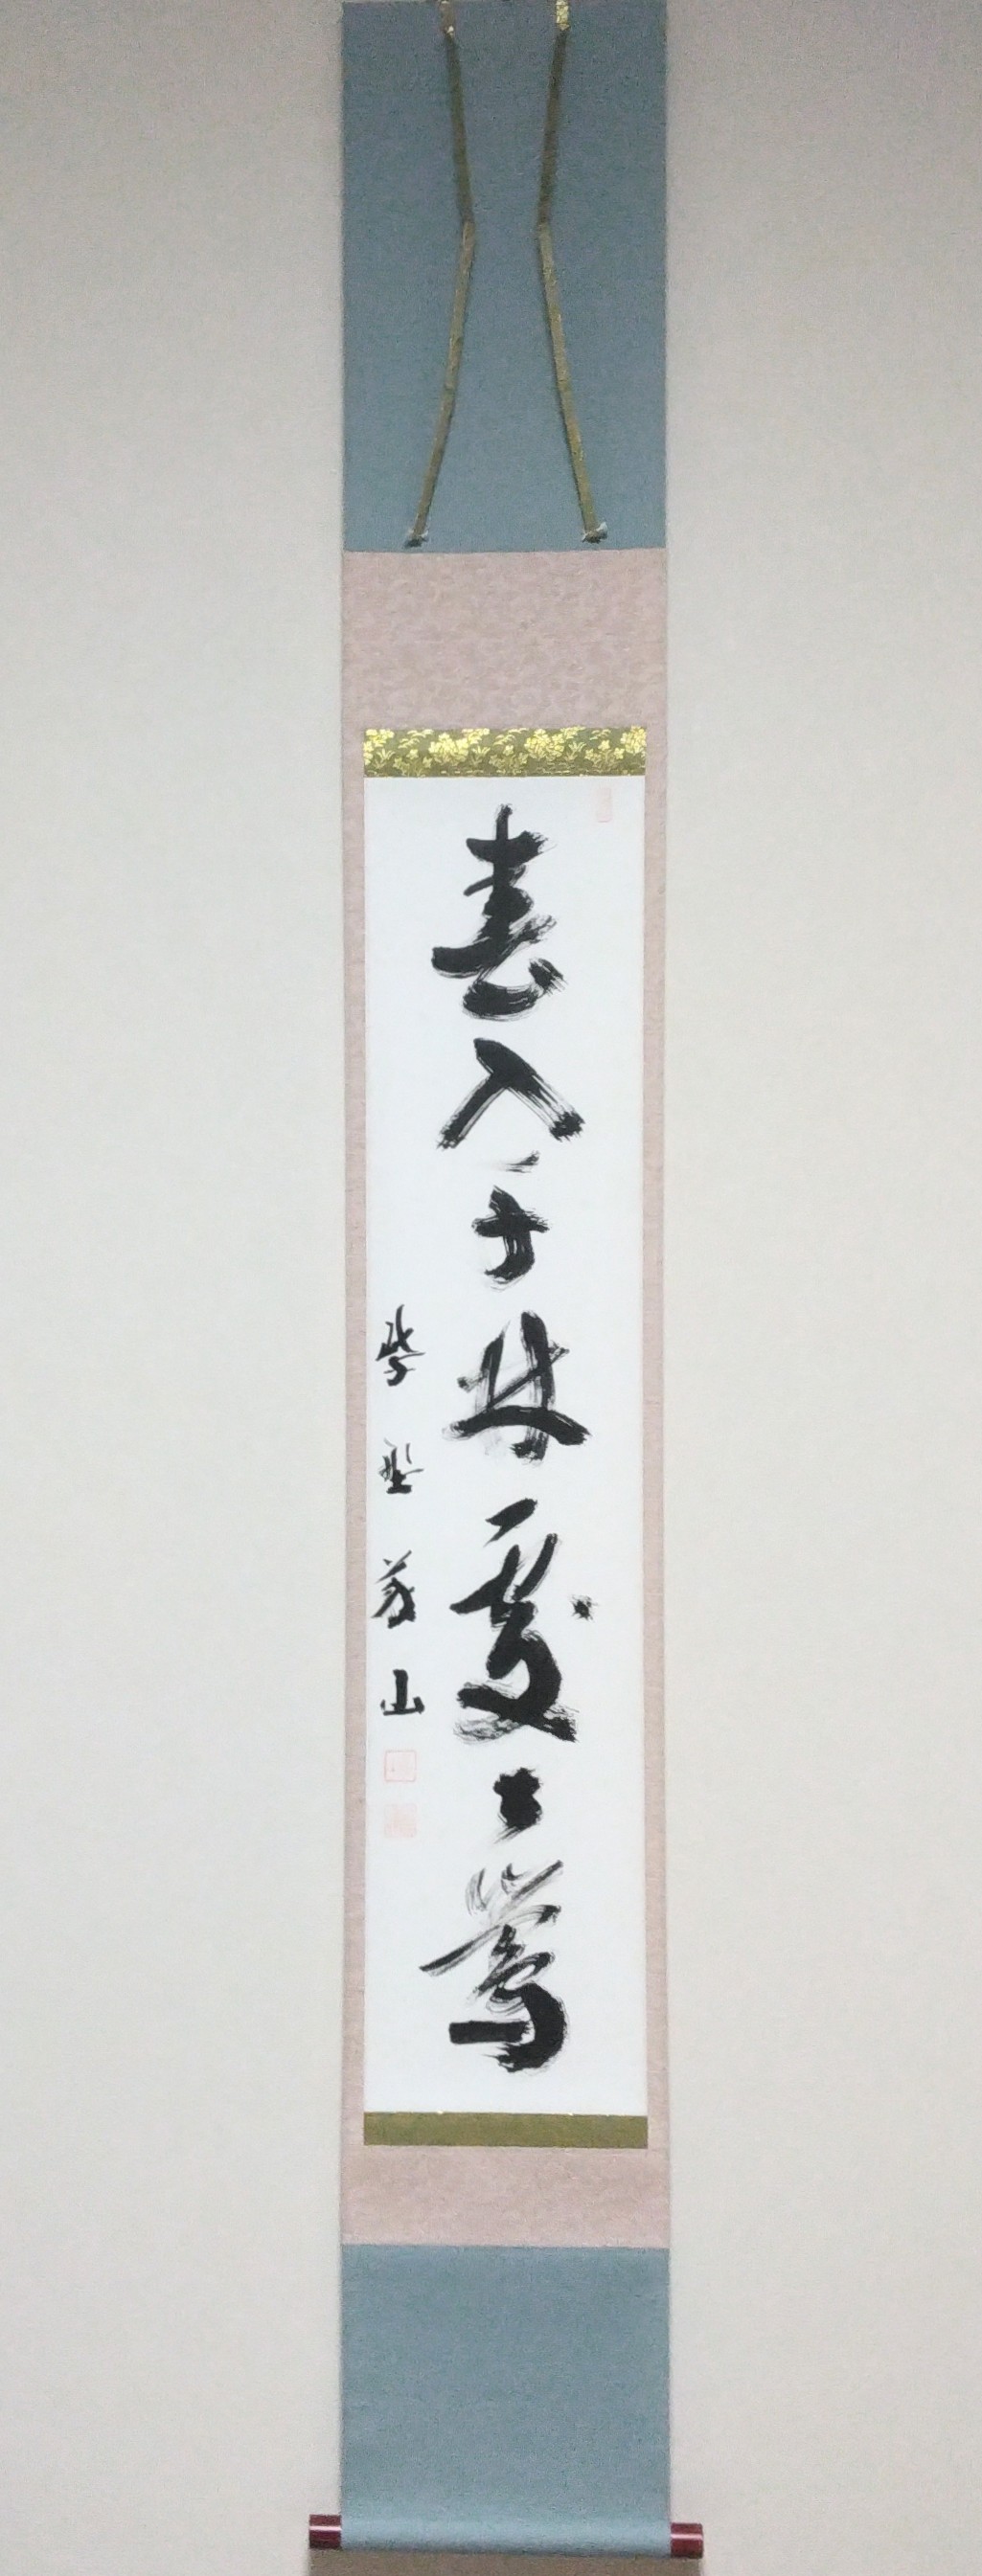 春入千林處々鶯
紫野義山